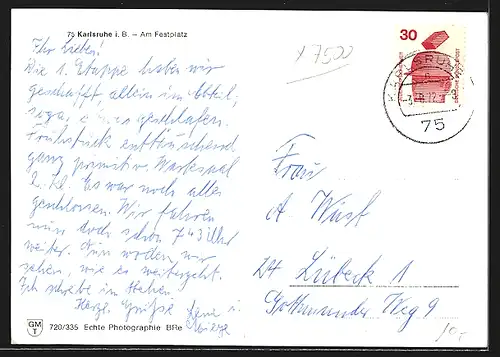 75 Karlsruhe i. B. – Am Festplatz
Ihr Lieben!
Die 1. Etappe haben wir
geschafft allein im Abteil,
sogar geschlafen.
Frühstück enttäuschend
ganz primitiv. Wartesaal
2. Kl. Es war noch alles
geschlossen. Wir fahren
nun doch schon 743 Uhr
weiter. Nun wollen wir
sehen, wie es weitergeht.
Ich schreibe im Stehen.
Herzl. Grüße
GM T 720/335 Echte Photographie BRe
x 7500
30
DEUTSCHE BUNDESPOST
KARLSRUHE
75
Frau
A Wüst
24 Lübeck 1
Gothmunder Weg 9
10.-